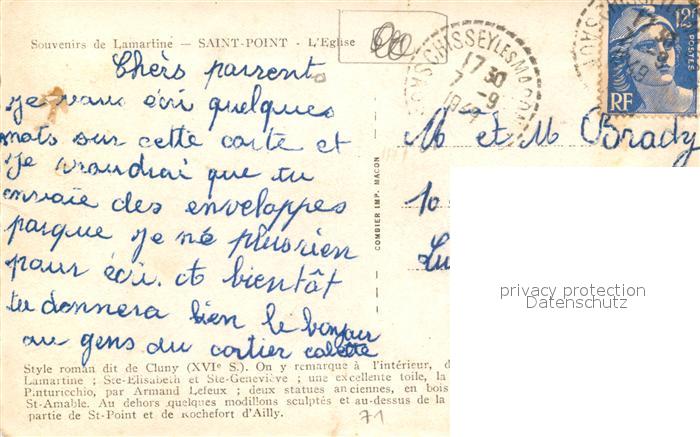 Souvenirs de Lamartine — SAINT-POINT - L'Eglise
Chèrs parrents
je vous écri quelques
mots sur cette carte et
je vroudrai que tu
envoie des enveloppes
parque je né plusrien
pour écri. A bientôt
tu donnera bien le bonjour
au gens du cartier colette
Style roman dit de Cluny (XVIe S.). On y remarque à l'intérieur, d
Lamartine ; Ste-Elisabeth et Ste-Geneviève ; une excellente toile, la
Pinturicchio, par Armand Lefeux ; deux statues anciennes, en bois
St-Amable. Au dehors quelques modillons sculptés et au-dessus de la
partie de St-Point et de Rochefort d'Ailly.
71
COMBIER IMP. MACON
CRISSEY LES MACON
17 30
7 -9
1949
12F
POSTES
RF
M et M Brady
10
Lu
privacy protection
Datenschutz